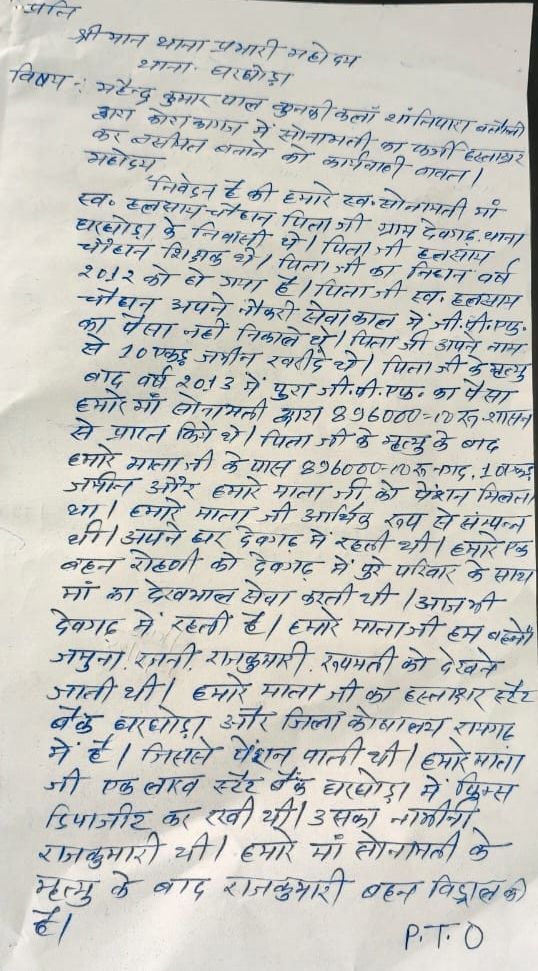 प्रति
श्रीमान थाना प्रभारी महोदय
थाना - घरघोड़ा
विषय : महेन्द्र कुमार पाल कुनकी कलॉ
द्वारा कोरा कागज में सोनामती का फर्जी हस्ताक्षर
कर वसीयत बनाने को कार्यवाही बावत।
महोदय
निवेदन है की हमारे स्व. सोनामती मां
स्व. हलसाय चौहान पिता जी ग्राम देवगढ़ थाना
घरघोड़ा के निवासी थे। पिता जी हलसाय
चौहान शिक्षक थे। पिता जी का निधन वर्ष
2012 को हो गया है। पिता जी स्व. हलसाय
चौहान अपने नौकरी सेवा काल में जी.पी.एफ.
का पैसा नहीं निकाले थे। पिता जी अपने नाम
से 10 एकड़ जमीन खरीदे थे। पिता जी के मृत्यु
बाद वर्ष 2013 में पुरा जी.पी.एफ. का पैसा
हमारे माँ सोनामती द्वारा 896000=00 रू शासन
से प्राप्त किये थे। पिता जी के मृत्यु के बाद
हमारे माता जी के पास 896000=00 रू नगद, 10 एकड़
जमीन और हमारे माता जी को पेंशन मिलता
था। हमारे माता जी आर्थिक रूप से संम्पन्न
थी। अपने घर देवगढ़ में रहती थी। हमारे एक
बहन रोहणी को देवगढ़ में पुरे परिवार के साथ
मां का देखभाल सेवा करती थी। आज भी
देवगढ़ में रहती है। हमारे माता जी हम बहनों
जमुना, रजनी, राजकुमारी, रूपमती को देखने
जाती थी। हमारे माता जी का हस्ताक्षर स्टैट
बैंक घरघोड़ा और जिला कोषालय रायगढ़
में है। जिससे पेंशन पाती थी। हमारे माता
जी एक लाख स्टैट बैंक घरघोड़ा में फ़िक्स
डिपाजीट कर रखी थी। उसका नामीनी
राजकुमारी थी। हमारे माँ सोनामती के
मृत्यु के बाद राजकुमारी बहन विड्राल की
है।
P.T.O